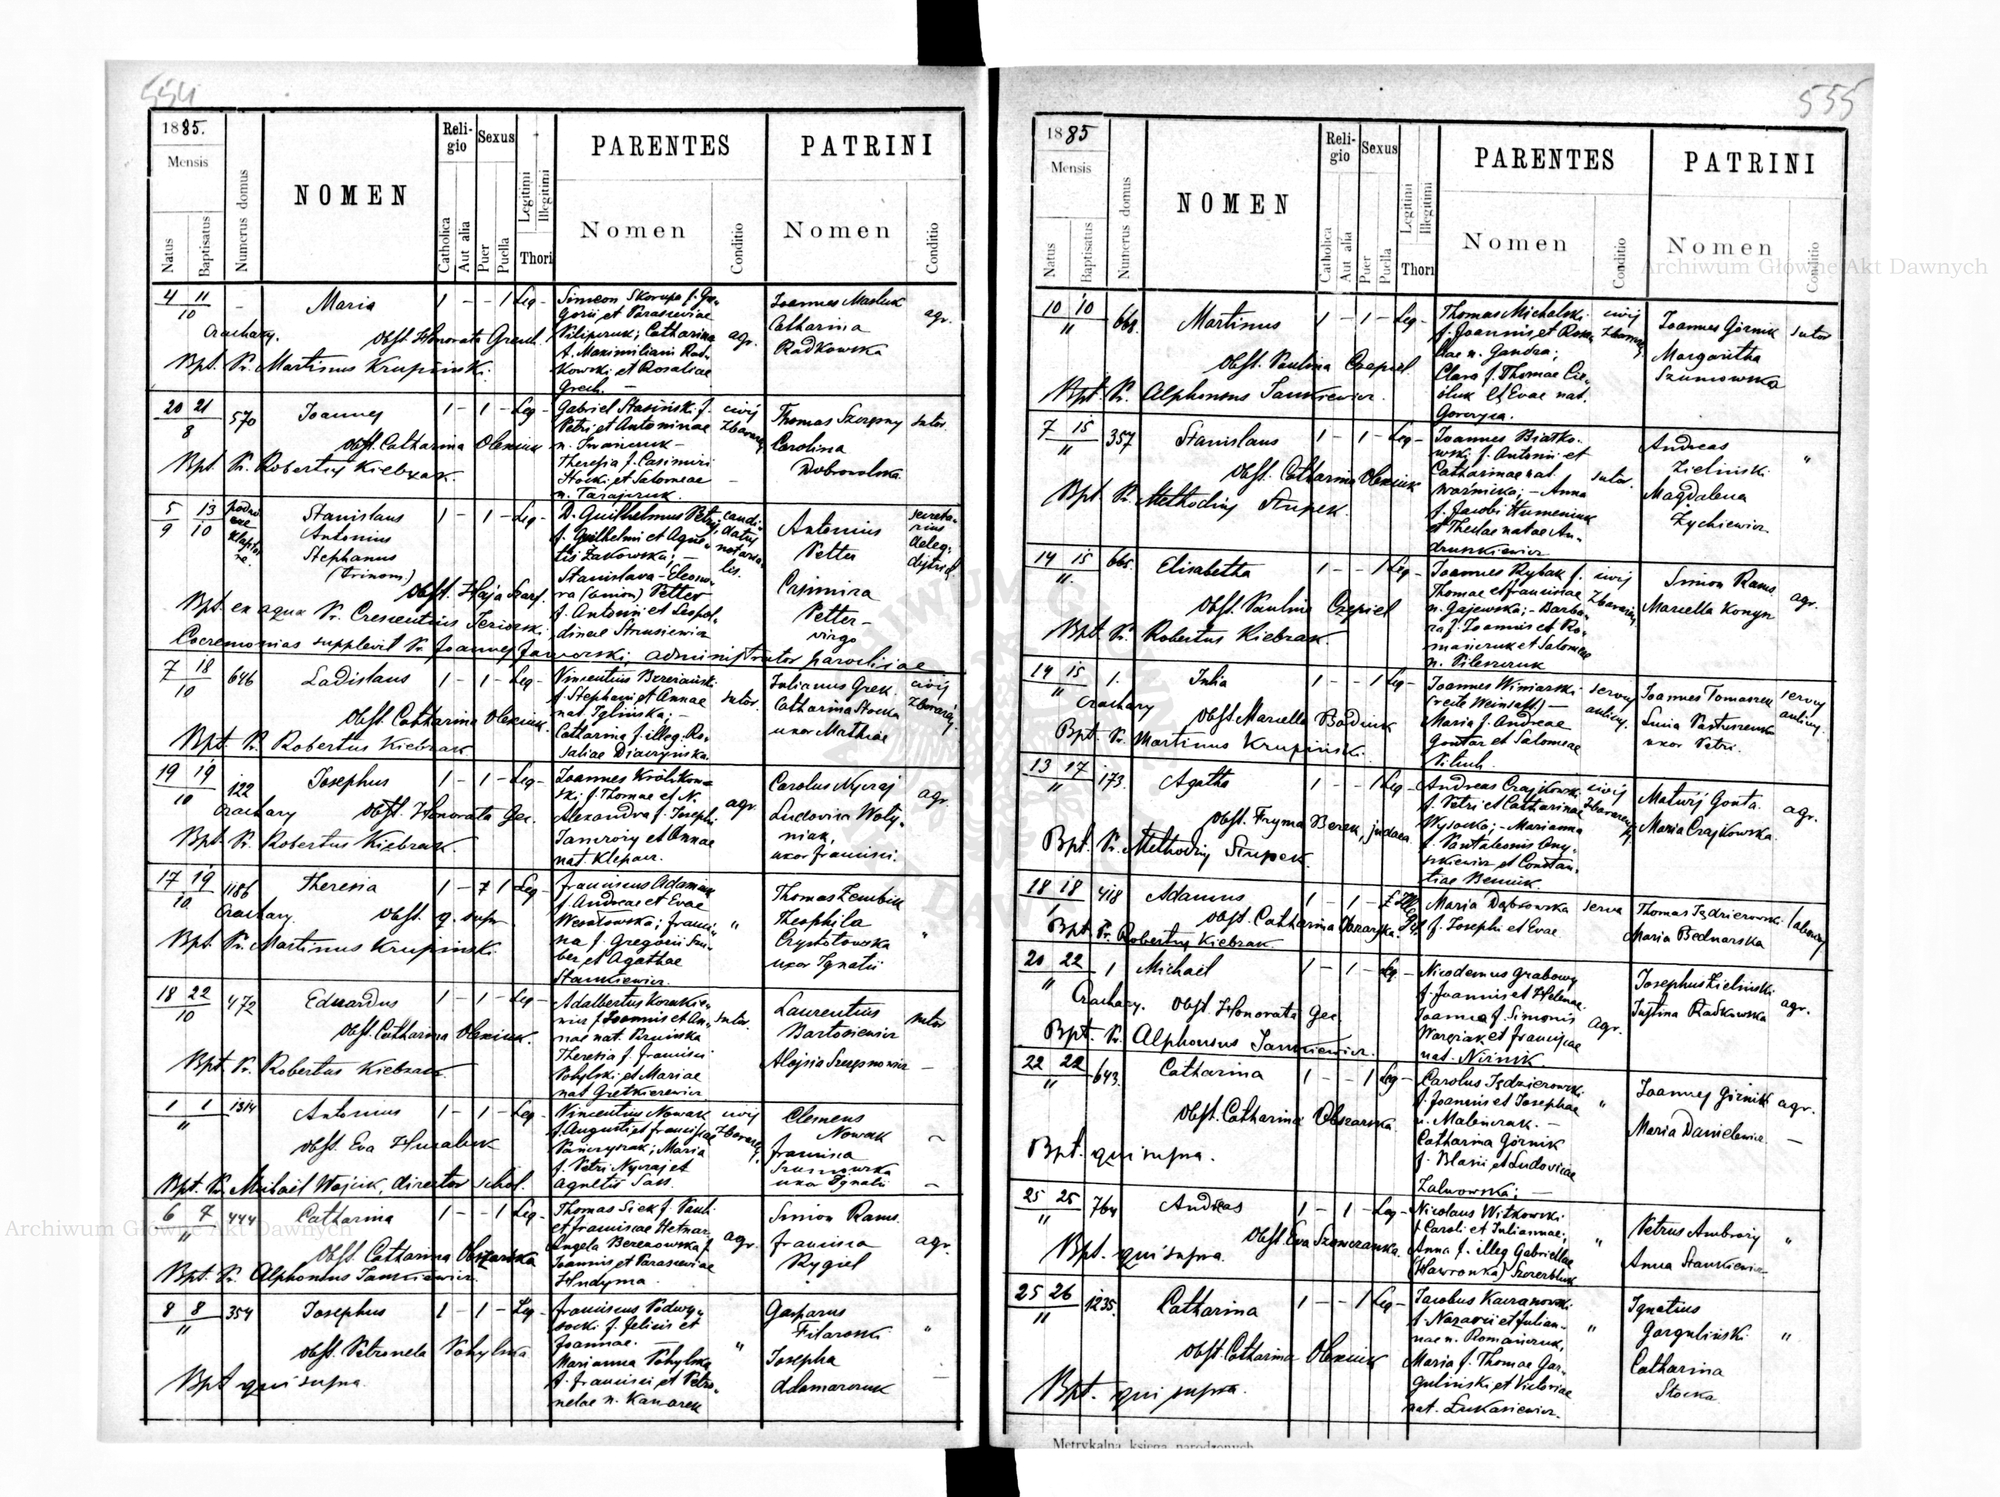 554
1885.
Mensis
Natus
Baptisatus
Numerus domus
NOMEN
Religio
Catholica
Aut alia
Sexus
Puer
Puella
Legitimi
Illegitimi
Thori
PARENTES
Nomen
Conditio
PATRINI
Nomen
Conditio
4 11
10
Maria
1 - - 1 Leg -
Czachary.
Obst. Honorata
Bpt. Pr. Martinus Krupiński.
Simeon Skorupa f. Gre-
gorii et Parasceviae
Pilipczuk; Catharina
f. Maximiliani Rad-
kowski et Rosaliae
Grech. -
agr.
Joannes Masluk
Catharina
Radkowska
agr.
20 21
8
570
Joannes
1 - 1 - Leg -
Obst. Catharina Olexiuk
Bpt. Pr. Robertus Kiebzak.
Gabriel Stasiński f.
Petri et Antoninae
n. Iwańczuk -
Theresia f. Casimiri
Stocki et Salomeae
civis
Zbaraz.
Thomas Szczepny
Carolina
Dobrowolska
sutor.
5 13
9 10
Stanislaus
Antonius
Stephanus
(trinom)
1 - 1 - Leg -
Bpt. ex aqua Pr. Crescentius
Coeremonias supplevit Pr. Joannes Jaworski, administrator parochiae
D. Guilhelmus Petry,
f. Guilhelmi et Agne-
tis Żakowska; -
Stanislava-Eleono-
ra (binom) Petter
f. Antonii et Leopol-
dinae Strusiewicz
candi-
datus
notaria-
lis.
Antonius
Petter
Casimira
Petter -
virgo
secreta-
rius
deleg.
district.
7 18
10
646
Ladislaus
1 - 1 - Leg -
Obst. Catharina Olexiuk.
Bpt. Pr. Robertus Kiebzak
Vincentius Brzeziański
f. Stephani et Annae
nat. Iglińska; -
Catharina f. illeg. Ro-
saliae
sutor.
Julianus Grek.
Catharina Stocka
uxor Mathiae
civis
Zbaraz.
19 19
10
122
Josephus
1 - 1 - Leg -
Czachary
Obst. Honorata Gec.
Bpt. Pr. Robertus Kiebzak.
Joannes Królikow-
ski f. Thomae et N.
Alexandra f. Josephi
Jamrozy et Annae
nat. Klepacz.
agr.
Carolus Nyczaj
Ludovica Woły-
niak,
uxor Francisci.
agr.
17 19
10
1186
Theresia
1 - 1 Leg -
Czachary.
Obst. q. supra
Bpt. Pr. Martinus Krupiński
Franciscus Adamiak
f. Andreae et Evae
Wesołowska; Francis-
na f. Gregorii
ber et Agathae
Stankiewicz.
"
Thomas Zembik
Theophila
Czystotowska
uxor Ignatii
"
18 22
10
472
Eduardus
1 - 1 - Leg -
Obst. Catharina Olexiuk.
Bpt. Pr. Robertus Kiebzak
Adalbertus
wicz f. Joannis et An-
nae nat.
Theresia f. Francisci
Pohylski et Mariae
nat. Gretkierewicz
sutor.
Laurentius
Bartosiewicz
Aloisia
sutor
-
1 1
"
1314
Antonius
1 - 1 - Leg -
Obst. Eva Huzaluk
Bpt. Pr. Michael Wojcik, director schol.
Vincentius Nowak
f. Augusti et Franciscae
Maria
f. Petri Nyczaj et
Agnetis Sass.
civis
Zbaraz.
Clemens
Nowak
Francisca
Szumowska
uxor Ignatii
-
6 7
"
444
Catharina
1 - - 1 Leg -
Obst. Catharina Obszarska
Bpt. Pr. Alphonsus Jankiewicz.
Thomas Siek f. Pauli
et Franciscae Hetmar,
Angela Berezowska f.
Joannis et Parasceviae
Hudyma.
agr.
Simon Rams.
Francisca
Rygiel
agr.
8 8
"
354
Josephus
1 - 1 - Leg -
Obst. Petronela Pohylska
Bpt. qui supra.
Franciscus Podwy-
socki f. Felicis et
Joannae. -
Marianna Pohylska
f. Francisci et Petro-
nelae n. Kanarek
"
Gasparus
Filarowski
Josepha
Adamarczuk
"
555
1885
Mensis
Natus
Baptisatus
Numerus domus
NOMEN
Religio
Catholica
Aut alia
Sexus
Puer
Puella
Legitimi
Illegitimi
Thori
PARENTES
Nomen
Conditio
PATRINI
Nomen
Conditio
10 10
"
Martinus
1 - 1 - Leg -
Obst. Paulina Czepiel
Bpt. Pr. Alphonsus Jankiewicz.
Thomas Michalski
f. Joannis et Rosa-
liae n. Gandra;
Clara f. Thomae Cie-
śluk et Evae nat.
civis
Zbaraz.
Joannes Górnik
Margaritha
Szumowska
sutor
7 15
"
357
Stanislaus
1 - 1 - Leg -
Obst. Catharina Olexiuk
Bpt. Pr. Methodius Stupek.
Joannes Białko-
wski f. Antonii et
Catharinae nat.
Woźnicka; - Anna
f. Jacobi Humeniuk
et Theclae natae An-
druszkiewicz
sutor.
Andreas
Zieliński
Magdalena
Zychiewicz
"
14 15
"
665.
Elisabetha
1 - - 1 Leg -
Obst. Paulina Czepiel
Bpt. Pr. Robertus Kiebzak
Joannes Rybak f.
Thomae et Franciscae
n. Gajewska; - Barba-
ra f. Joannis et Ro-
mańczuk et Salomeae
n. Pileszczuk
civis
Zbaraz.
Simon Rams
Marcella Konyn
agr.
14 15
"
1.
Julia
1 - - 1 Leg -
Czachary
Obst. Marcella Bodniuk
Bpt. Pr. Martinus Krupiński.
Joannes Winiarski
(recte Weinsaft) -
Maria f. Andreae
Gontar et Salomeae
servus
aulicus.
Joannes Tomaszek
Lucia Pastuszenko
uxor Petri.
servus
aulicus.
13 17
"
173.
Agatha
1 - - 1 Leg -
Obst. Fryma Berek, judaea
Bpt. Pr. Methodius Stupek.
Andreas Czajkowski
f. Petri et Catharinae
Wysocka; - Marianna
f. Pantaleonis Ony-
szkiewicz et Constan-
tiae Beniuk.
civis
Zbaraz.
Matwij Gonta.
Maria Czajkowska.
agr.
18 18
418
Adamus
1 - 1 - Illeg.
Obst. Catharina Obszarska.
Bpt. Pr. Robertus Kiebzak
Maria Dąbrowska
f. Josephi et Evae
serva
Thomas Jędzierowski
Maria Bednarska
20 22
"
1
Michael
1 - 1 - Leg -
Czachary.
Obst. Honorata Gec.
Bpt. Pr. Alphonsus Jankiewicz.
Nicodemus Grabowy
f. Joannis et Helenae
Joanna f. Simonis
et Franciscae
nat. Niznik.
agr.
Josephus Zieliński
Justina Radkowska
agr.
22 22
"
643.
Catharina
1 - - 1 Leg -
Obst. Catharina Obszarska.
Bpt. qui supra.
Carolus Jędzierowski
f. Joannis et Josephae
n. Malenczak. -
Catharina Górnik
f. Blasii et Ludovicae
Zalnowska; -
"
Joannes Górnik
Maria Danielewicz
agr.
-
25 25
"
764
Andreas
1 - 1 - Leg -
Obst. Eva Szewczanka.
Bpt. qui supra.
Nicolaus Witkowski
f. Caroli et Juliannae;
Anna f. illeg. Gabriellae
(Hawronka) Szczerbluk
"
Petrus Ambrozy
Anna Stankiewicz
"
25 26
"
1235.
Catharina
1 - - 1 Leg -
Obst. Catharina Olexiuk
Bpt. qui supra.
Jacobus Kaczanowski
f. Nazarii et Julian-
nae n. Romańczuk,
Maria f. Thomae Gar-
guliński et Victoriae
nat. Łukasiewicz.
"
Ignatius
Garguliński
Catharina
Stocka
"
Metrykalna księga narodzonych
Archiwum Główne Akt Dawnych
Archiwum Główne Akt Dawnych